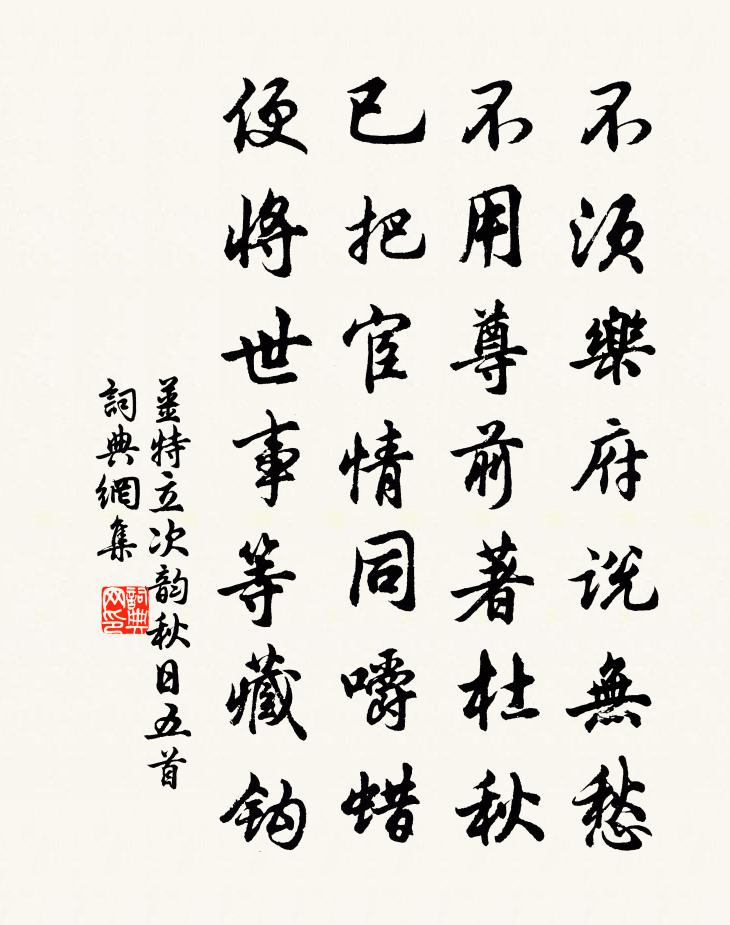 不須樂府說無愁
不用尊前著杜秋
已把宦情同嚼蜡
便將世事等藏鈎
姜特立次韵秋日五首
詞典網集
詞典网印